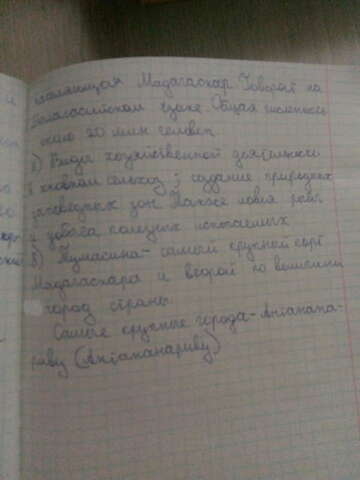 малагийцая Мадагаскар. Говорят на
Малагасийском языке. Общая численность
около 20 млн человек.
6) Виды хозяйственной деятельности
В основном сельхоз; создание природных
заповедных зон. Также ловля рыбы
и добыча полезных ископаемых
8) Туамасина - самый крупный порт
Мадагаскара и второй по величине
город страны.
Самые крупные города - Антанана-
риву (Антананариву)